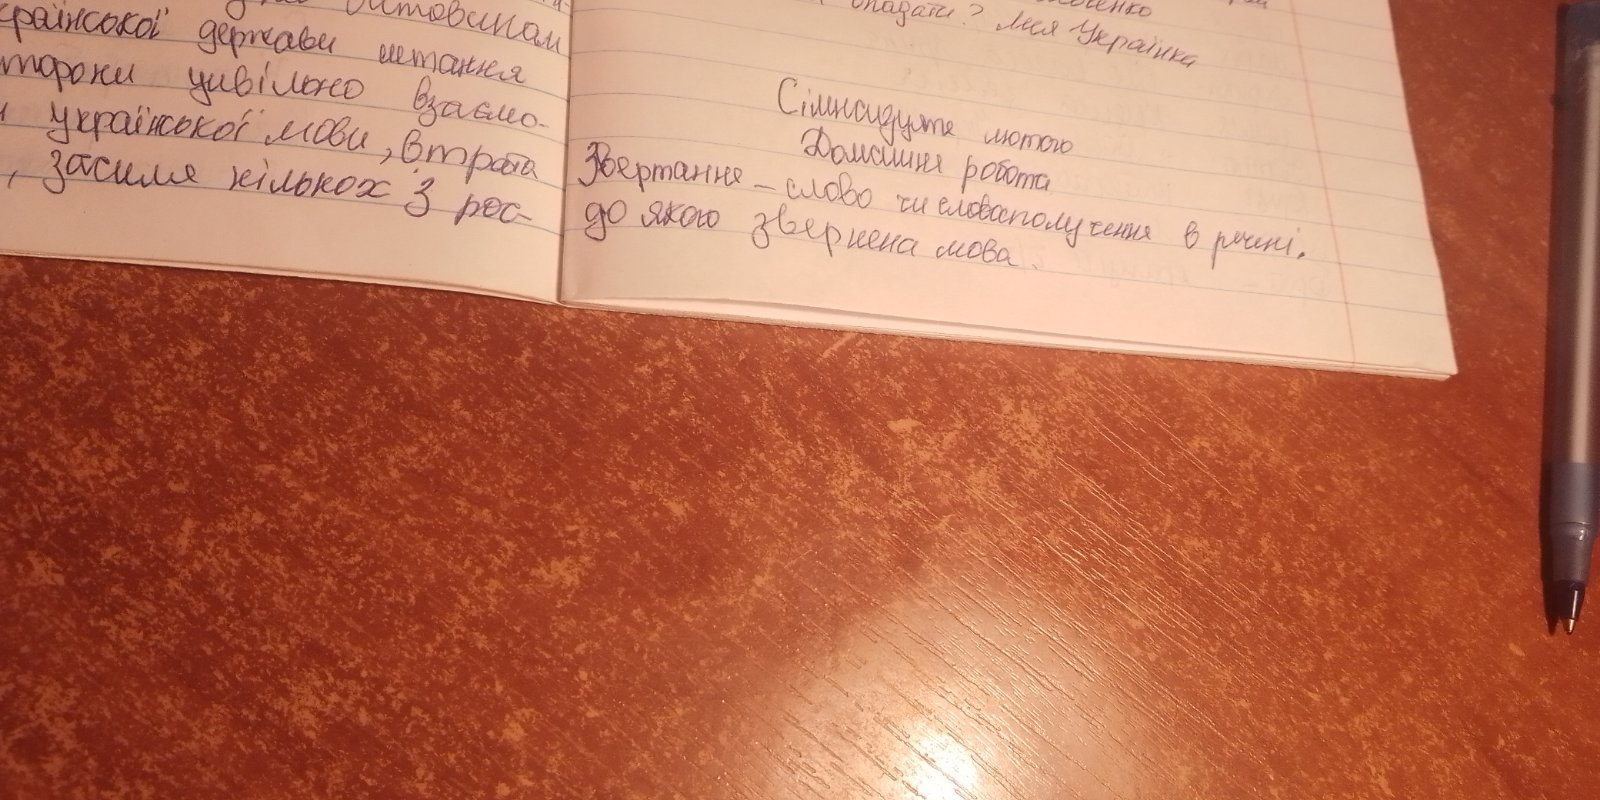 країнської держави питання
сторони цивільно взаємо-
української мови, втрата
, засилля кількох з рос-
опадати? Леся Українка
Сімнадцяте лютого
Домашня робота
Звертання – слово чи словосполучення в речені.
до якого звернена мова.